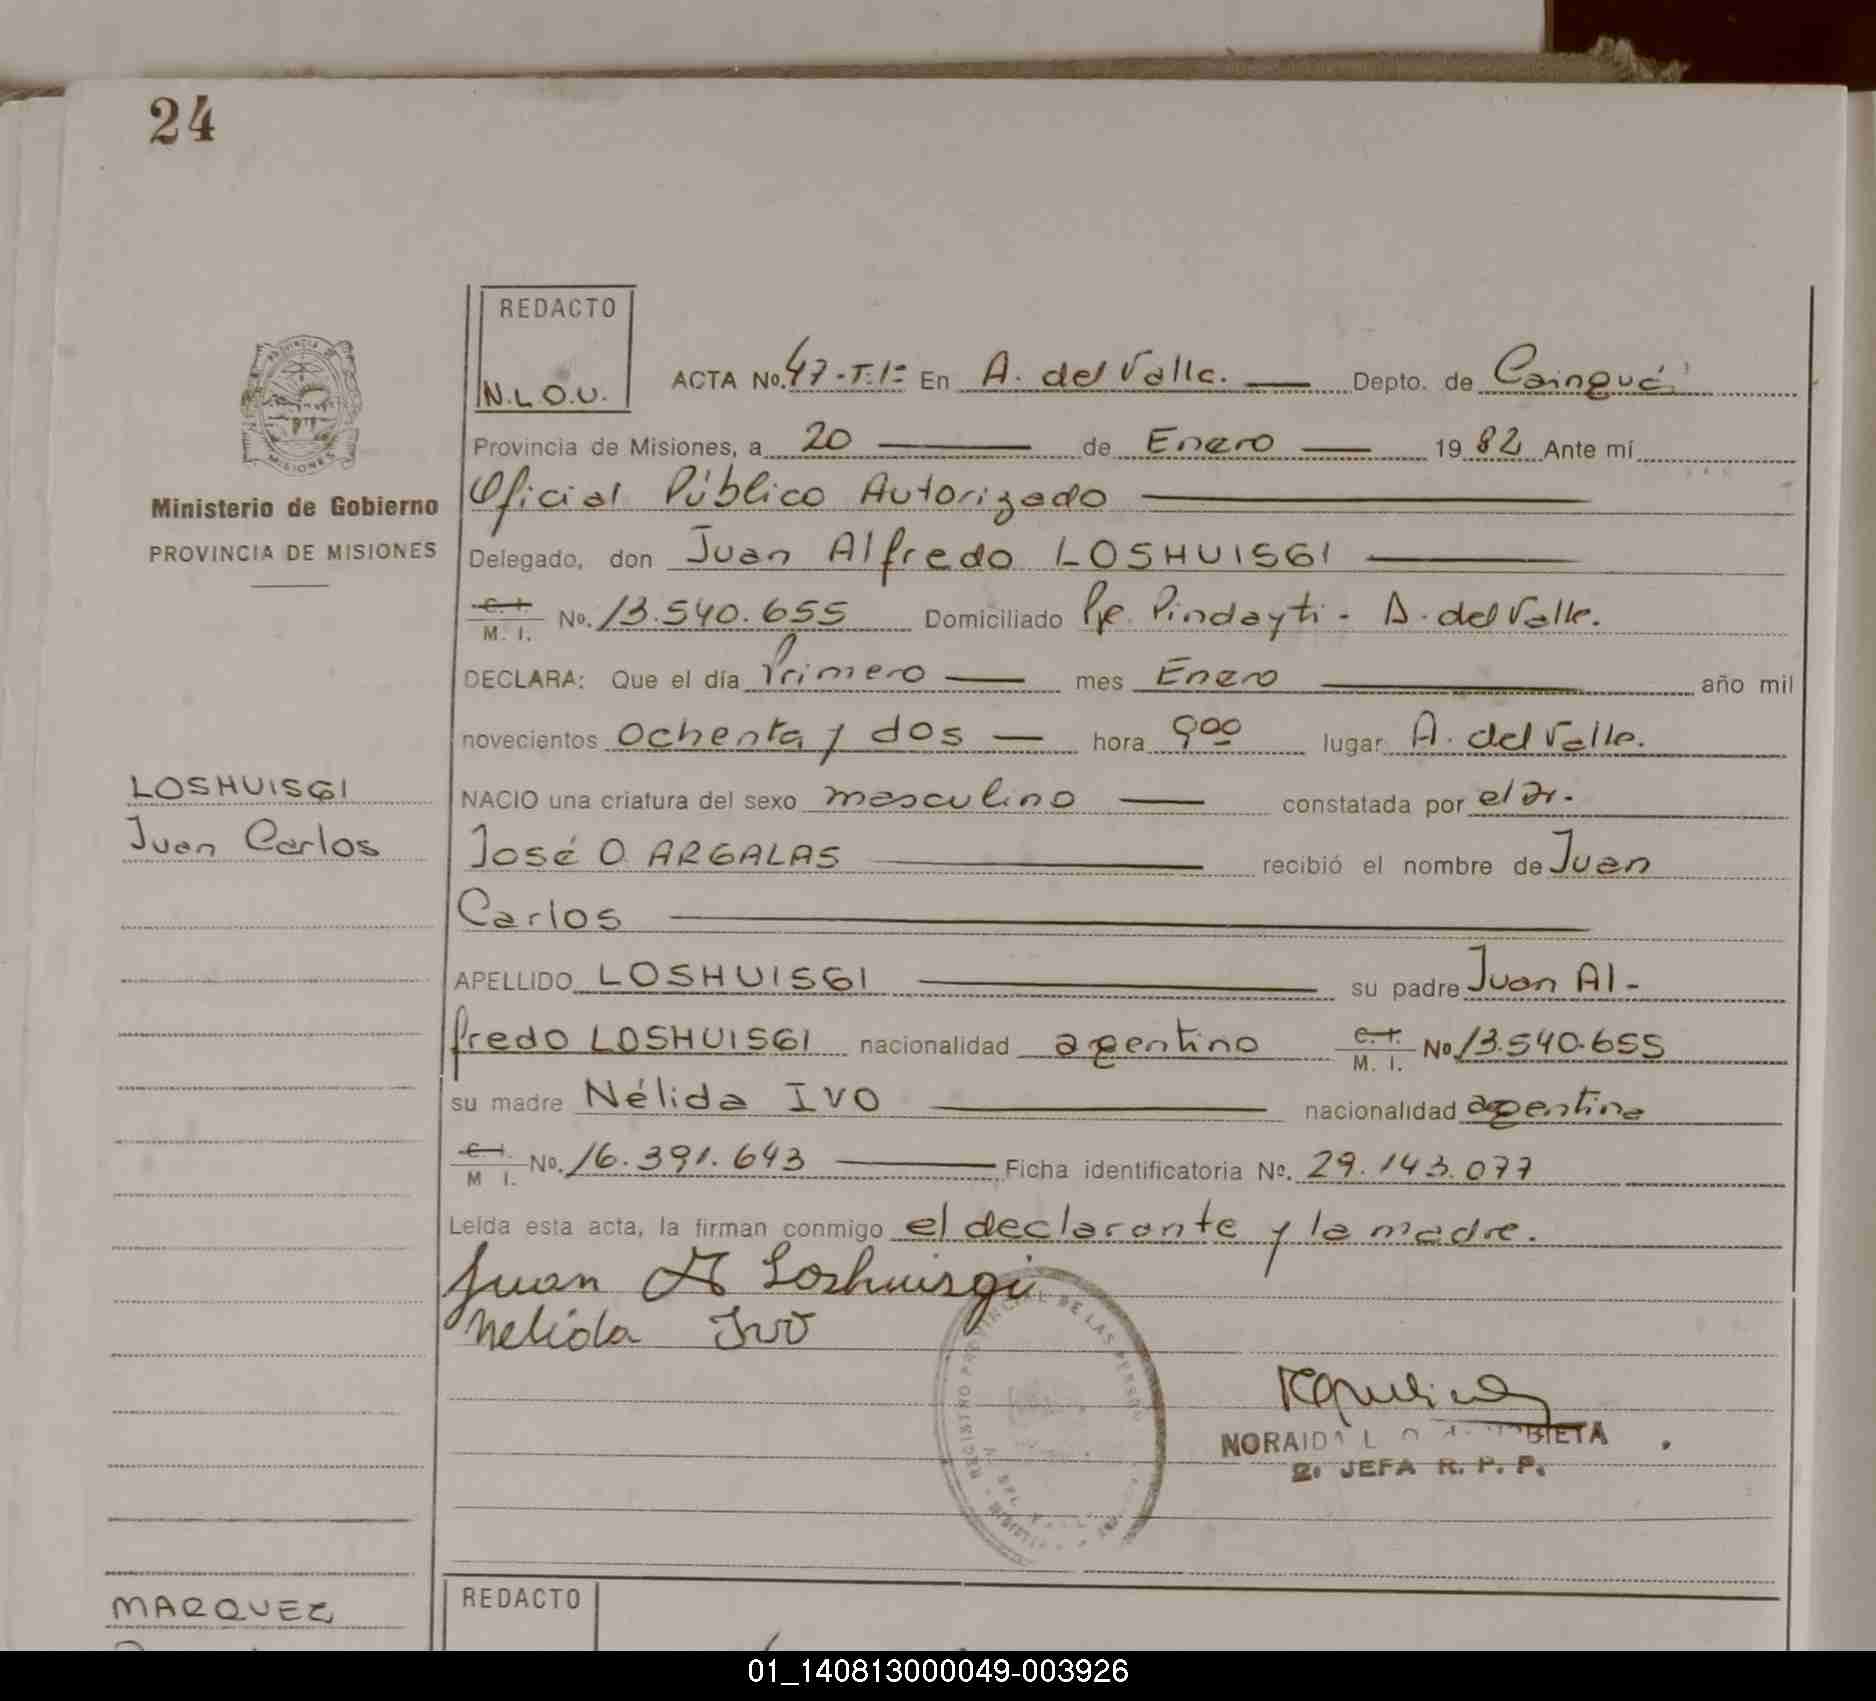 24
REDACTO
N.L.O.U.
ACTA No. 47-T.1º En A. del Valle. Depto. de Cainguá
Provincia de Misiones, a 20 de Enero 1982 Ante mí
Oficial Público Autorizado
Delegado, don Juan Alfredo LOSHUISGI
C. I. M. I. No. 13.540.655 Domiciliado Pje. Pindayti - A. del Valle.
DECLARA: Que el día Primero mes Enero año mil
novecientos ochenta y dos hora 9ºº lugar A. del Valle.
NACIO una criatura del sexo masculino constatada por el Dr.
José O. ARGALAS recibió el nombre de Juan
Carlos
APELLIDO LOSHUISGI su padre Juan Al-
fredo LOSHUISGI nacionalidad agentino C. I. M. I. No 13.540.655
su madre Nélida IVO nacionalidad agentina
C. I. M I. No. 16.391.643 Ficha identificatoria Nº. 29.143.077
Leída esta acta, la firman conmigo el declarante y la madre.
Juan A Loshuisgi
Nelida Ivo
REGISTRO PROVINCIAL DE LAS PERSONAS
NORAIDA L
2. JEFA R. P. P.
PROVINCIA DE MISIONES
Ministerio de Gobierno
PROVINCIA DE MISIONES
LOSHUISGI
Juan Carlos
MARQUEZ
REDACTO
01_140813000049-003926